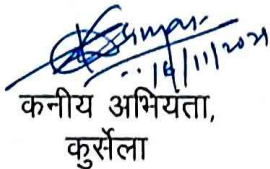 16/11/2021
कनीय अभियता,
कुर्सेला